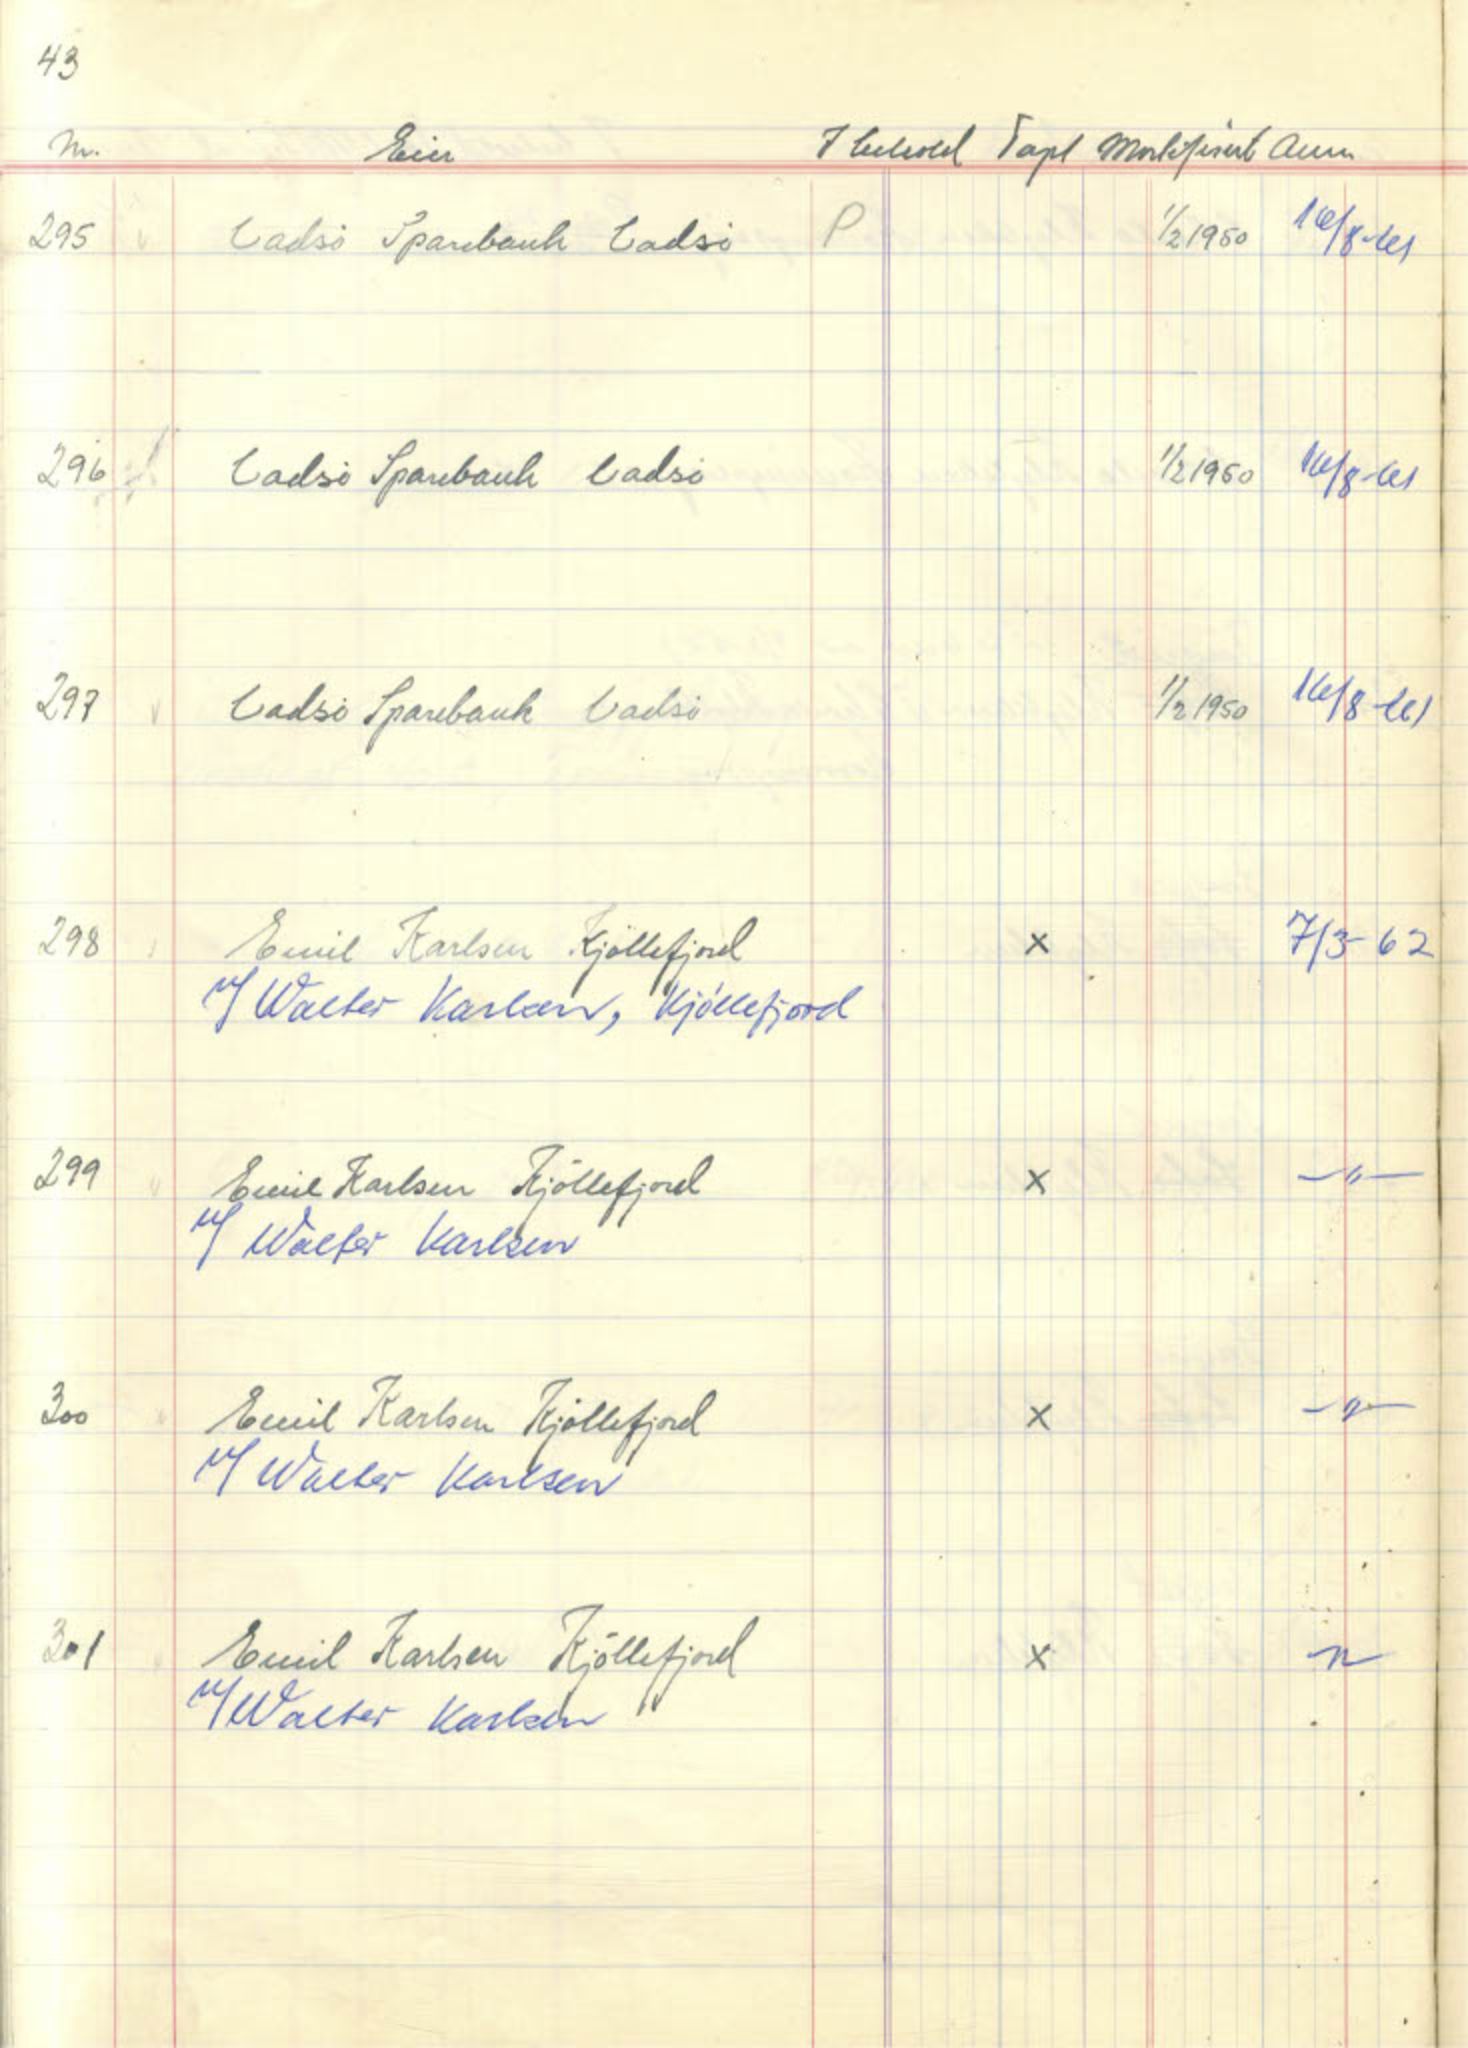 43
Nr. Eier I behold Tapt Mortifisert Anm
295 Vadsö Sparebank Vadsö P 1/2 1950 16/8-61
296 Vadsö Sparebank Vadsö 1/2 1950 16/8-61
297 Vadsö Sparebank Vadsö 1/2 1950 16/8-61
298 Emil Karlsen Kjöllefjord x 7/3-62
v/ Walter Karlsen, Kjöllefjord
299 Emil Karlsen Kjöllefjord x —"—
v/ Walter Karlsen
300 Emil Karlsen Kjöllefjord x —"—
v/ Walter Karlsen
301 Emil Karlsen Kjöllefjord x —"—
v/ Walter Karlsen